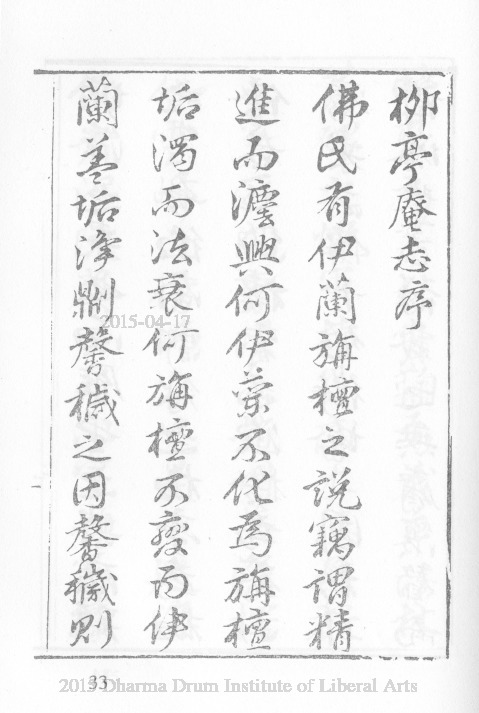 柳亭庵志序
佛氏有伊蘭旃檀之説竊謂精
進而灋興何伊蘭不化爲旃檀
垢濁而法衰何旃檀不變而伊
蘭葢垢淨剙馨穢之因馨穢則
2015-04-17
33
2015 Dharma Drum Institute of Liberal Arts